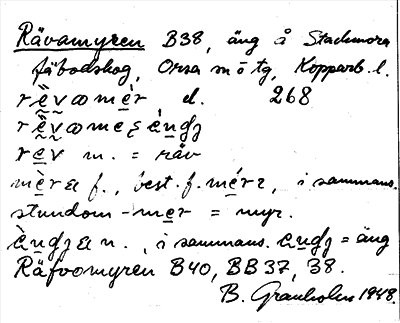 Rävamyren B38, äng å Stackmora
fäbodskog, Orsa m ö tg, Kopparb. l.
rɛ̀vωmèr, d. 268
rɛ̀vωmeʂèndʒ
rev m. = räv
mèrɛ f., best. f. mérɛ, i sammans.
stundom -mer = myr.
èndʒɛ n., i sammans. endʒ = äng
Räfvomyren B40, BB37, 38.
B. Granholm 1948.